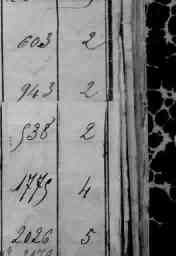 603 2
943 2
538 2
1775 4
2026 5